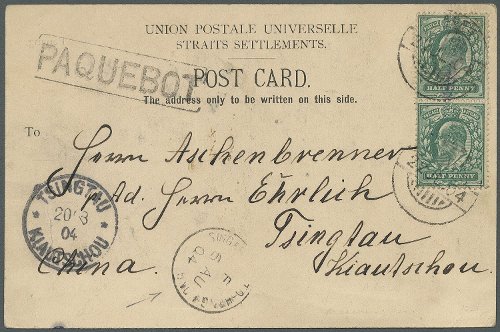 UNION POSTALE UNIVERSELLE
STRAITS SETTLEMENTS.
PAQUEBOT
POST CARD.
The address only to be written on this side.
HALF PENNY
HALF PENNY
To
Herrn Aschenbrenner
Ad. Herrn Ehrlich
Tsingtau
Kiautschou.
China.
TSINGTAU
20 8
04
KIAUTSCHOU
AU
04